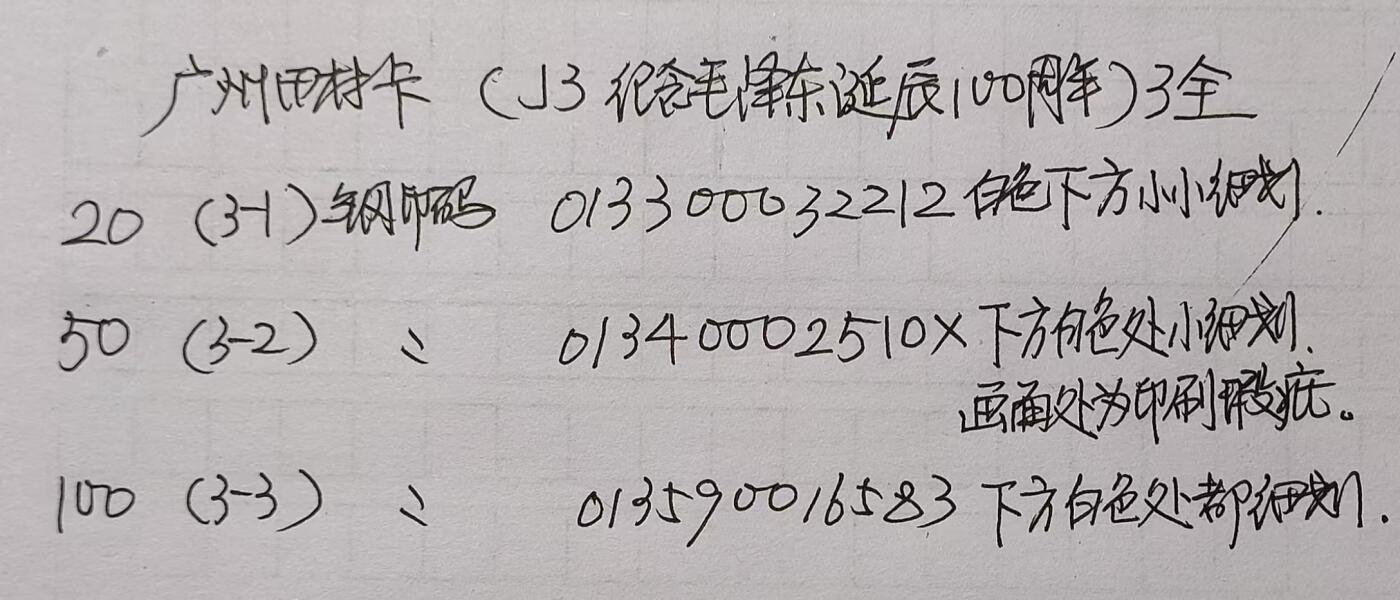 广州田村卡（J3 纪念毛泽东诞辰100周年）3全
20 （3-1）钢印码 013300032212 白色下方小小细划.
50 （3-2） 〃 01340002510X 下方白色处小细划.
画面处为印刷瑕疵。
100 （3-3） 〃 013590016583 下方白色处都细划.